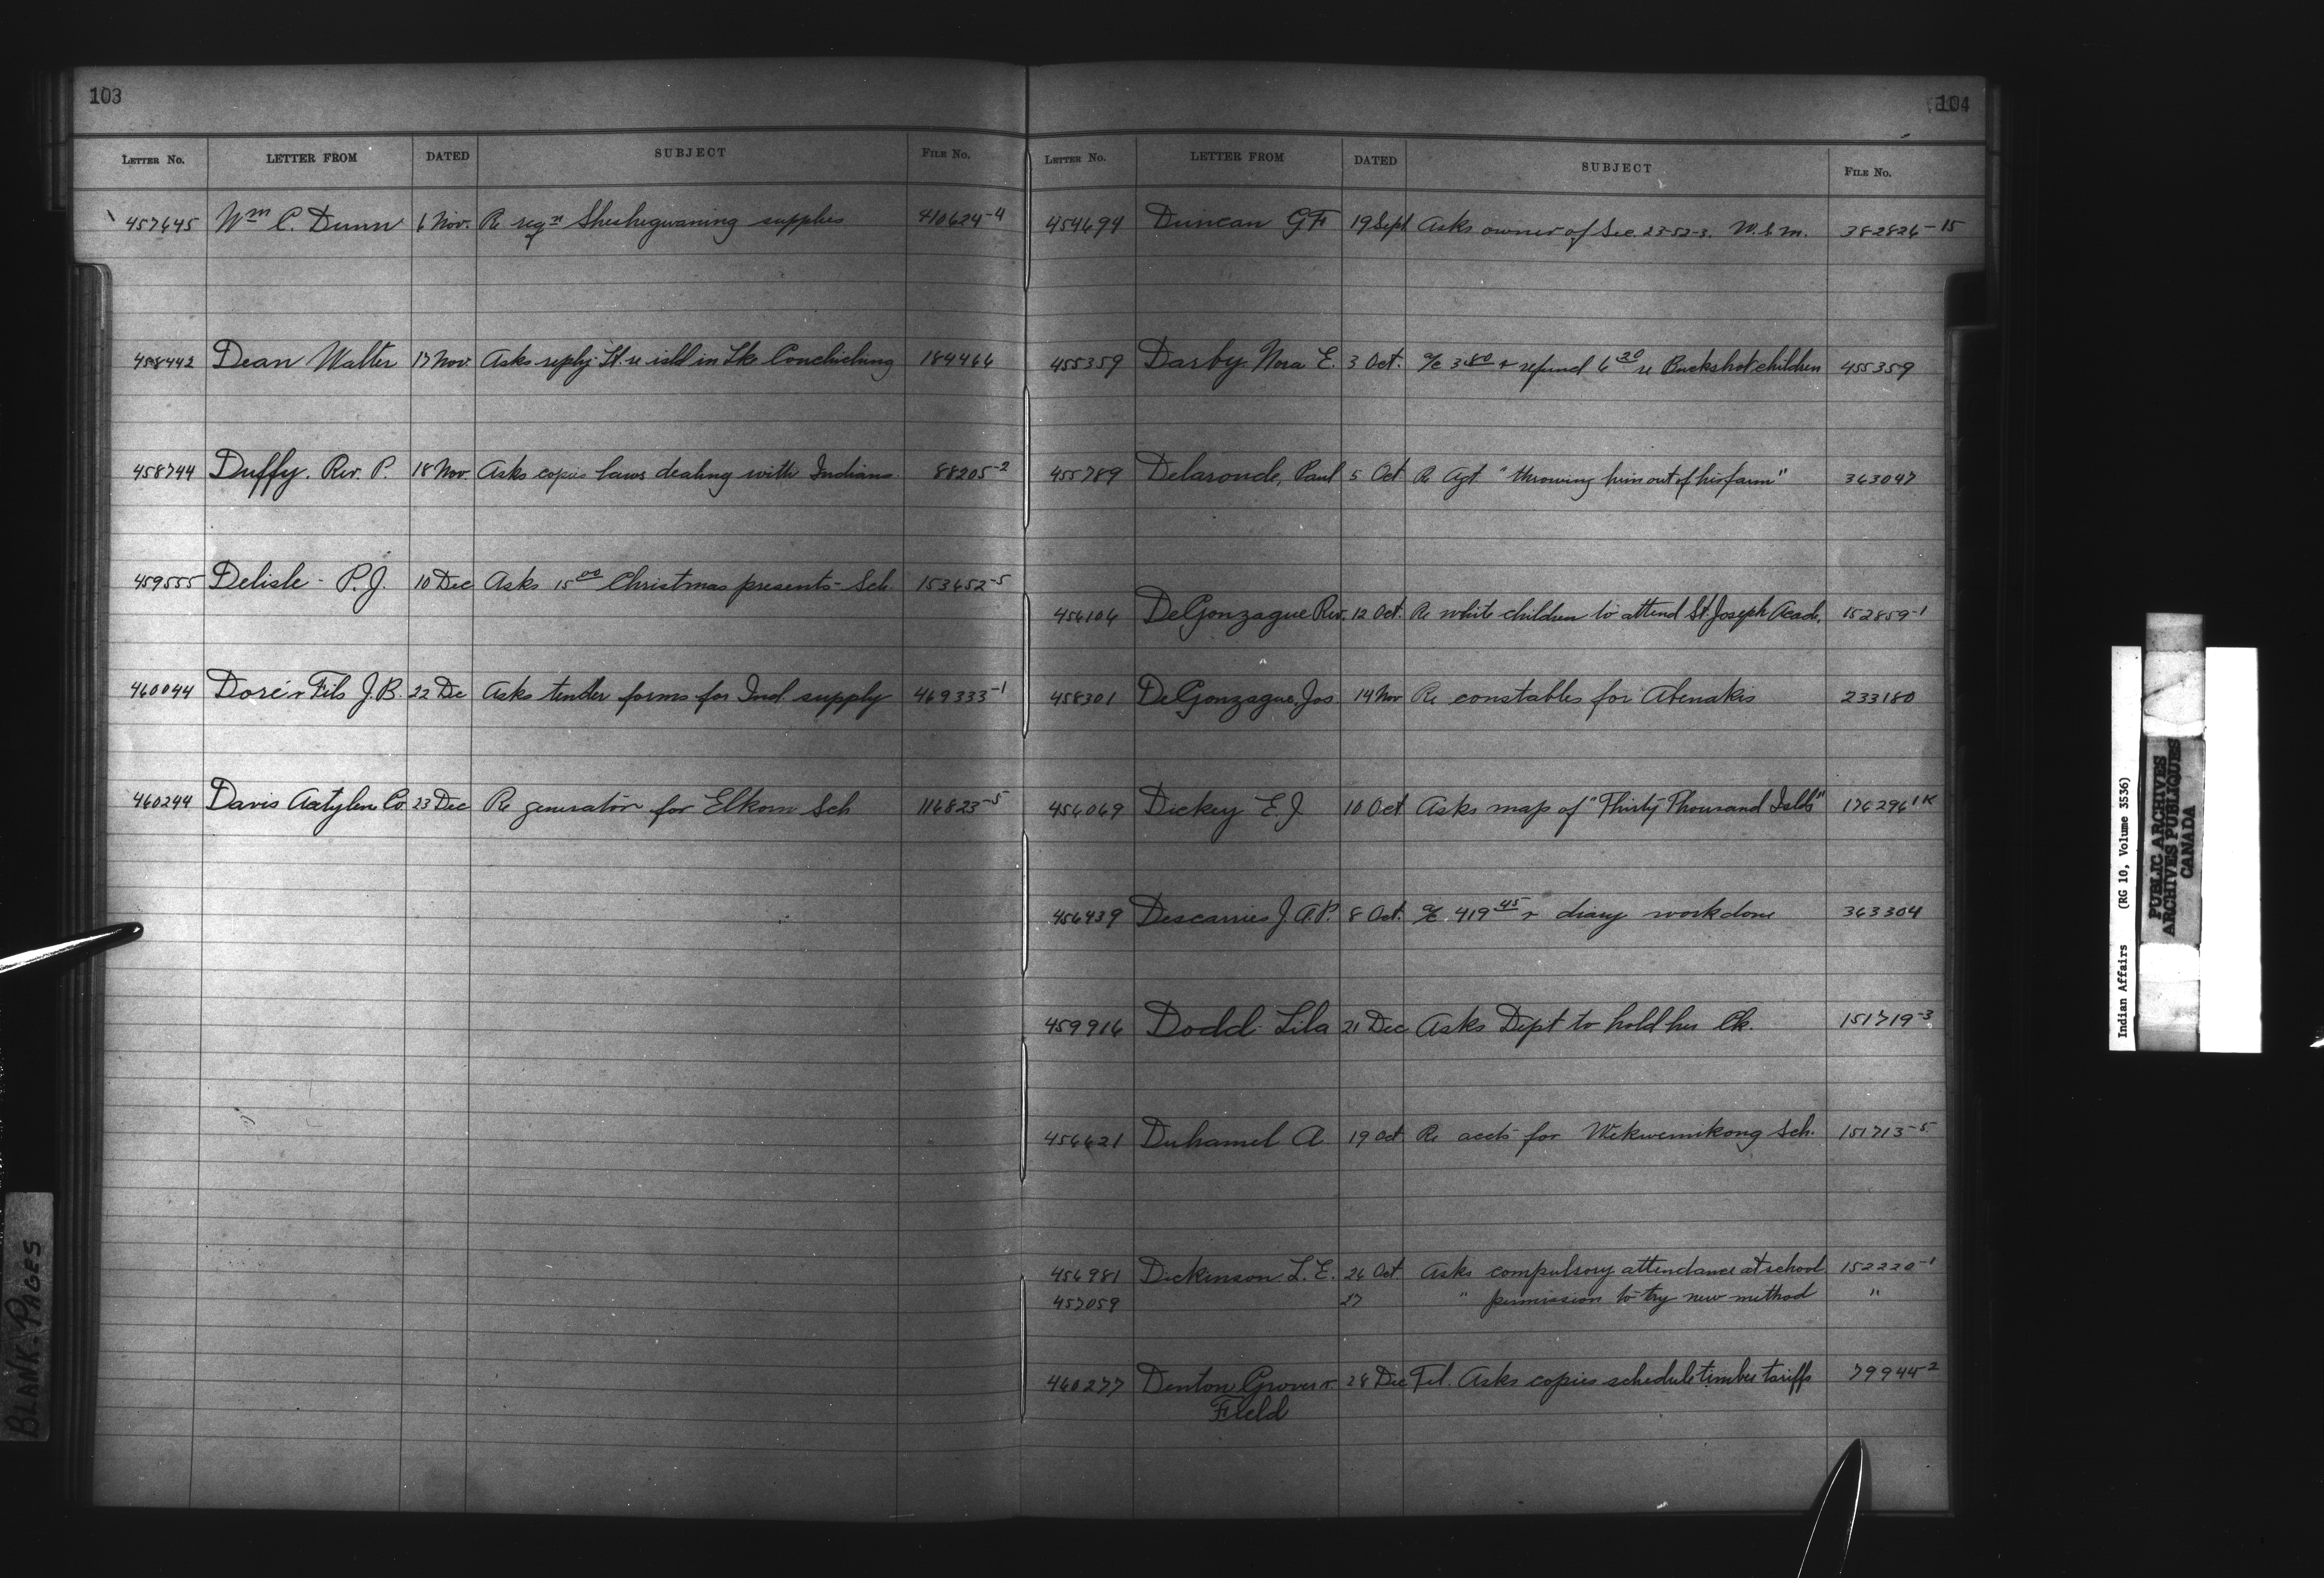 103
LETTER NO. LETTER FROM DATED SUBJECT FILE NO.
457645 Wm C. Dunn 6 Nov. Re reqn Sheshegwaning supplies 410624-4
458442 Dean Walter 17 Nov. Asks reply lt. re isld in Lke Conchiching 184466
458744 Duffy. Rev. P. 18 Nov Asks copies laws dealing with Indians. 88205-2
459555 Delisle - P.J. 10 Dec Asks 15 00 Christmas presents - Sch. 153652-5
460044 Doré & Fils J.B. 22 Dec Asks tender forms for Ind. supply 469333-1
460244 Davis Acetylene Co. 23 Dec Re generator for Elkorn Sch 116823-5
104
LETTER NO. LETTER FROM DATED SUBJECT FILE NO.
454694 Duncan GF 19 Sept Asks owner of Sec. 23-52-3. W.5.M. 382826-15
455359 Darby Nora E. 3 Oct. a/c 3 80 & refund 6 20 re Buckshot children 455359
455789 Delaronde, Paul 5 Oct Re Agt "throwing him out of his farm" 363047
456106 DeGonzague Rev. 12 Oct. Re white children to attend St Joseph Acad. 152859-1
458301 DeGonzague, Jos 14 Nov Re constables for Abenakis 233180
456069 Dickey E.J 10 Oct Asks map of "Thirty Thousand Islds" 176296 1K
456439 Descarries J.A.P. 8 Oct. a/c. 419 45 & diary work done 363304
459916 Dodd Lila 21 Dec Asks Dept to hold her Ck. 151719-3
456621 Duhamel A 19 Oct Re accts for Wekwemikong Sch. 151713-5
456981 Dickinson L.E. 26 Oct Asks compulsory attendance at school 152220-1
457059 27 " permission to try new method "
460277 Denton Grover & 28 Dec Tel. Asks copies schedule timber tariffs 79944-2
Field
BLANK-PAGES
Indian Affairs (RG 10, Volume 3536)
PUBLIC ARCHIVES
ARCHIVES PUBLIQUES
CANADA